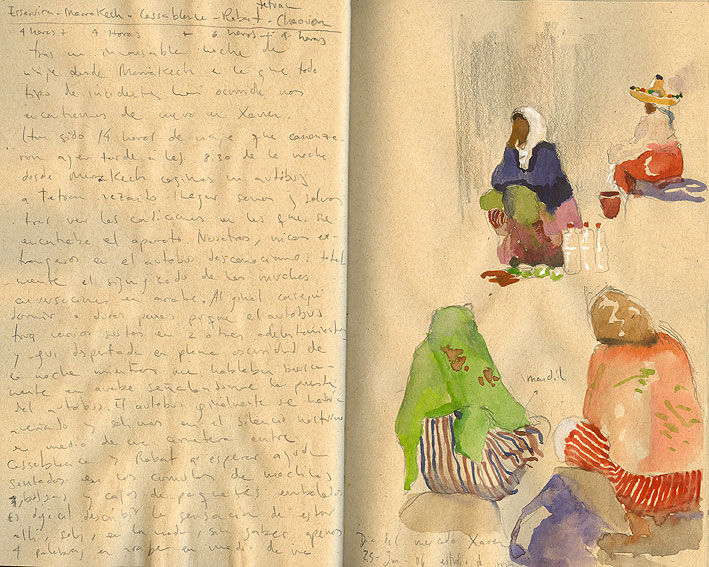 Essevira - Marrakech - Cassablanca - Rabat - Tetuan - Chaouen
4 horas + 4 horas + 6 horas + 4 horas
tras un incansable noche de
viaje desde Marrakech en la que todo
tipo de incidentes han ocurrido nos
encontramos de nuevo en Xauen.
Han sido 14 horas de viaje que comenza-
ron ayer tarde a las 8.30 de la noche
desde Marrakech cogimos un autobus
a Tetuan rezando llegar sanos y salvos
tras ver las condiciones en las que se
encontraba el aparato. Nosotros, unicos ex-
trangeros en el autobus desconociamos total-
mente el significado de las muchas
conversaciones en arabe. Al final consegui
dormir a duras penas porque el autobus
tuvo varios sustos en 2 o tres adelantamientos
y aqui desperté en plena oscuridad de
la noche mientras me hablaban
en arabe señalandome la puerta
del autobus. El autobus finalmente se habia
averiado y salimos en el silencio nocturno
en medio de una carretera entre
Cassablanca y Rabat a esperar ayuda
sentados en los cumulos de mochilas
bolsas y cajas de paquetes embalados
Es dificil describir la sensacion de estar
alli, solos, en la nada, sin saber apenas
4 palabras en arabe en medio de una
mendil
Dia del mercado Xauen
25 - Jun - 06 estudio d